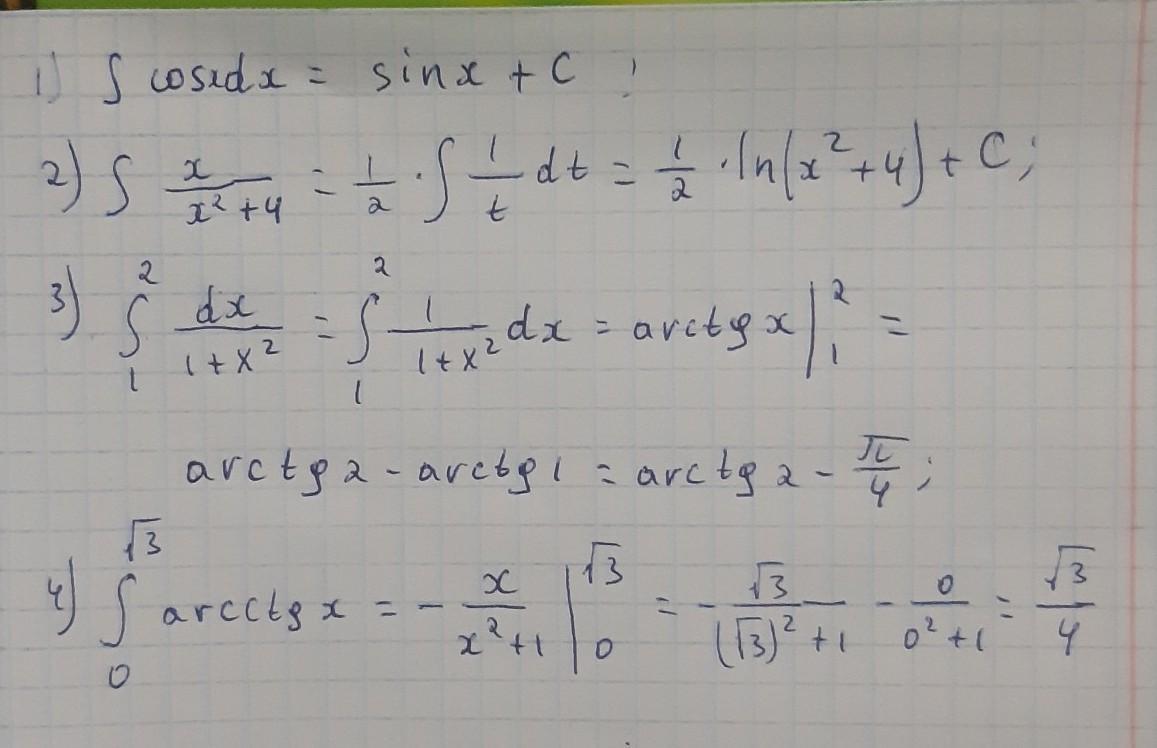 1) ∫ cosxdx = sinx + C ;
2) ∫ x/(x²+4) = 1/2 · ∫ 1/t dt = 1/2 · ln(x²+4) + C;
3) ∫₁² dx/(1+x²) = ∫₁² 1/(1+x²) dx = arctg x |₁² =
arctg 2 - arctg 1 = arctg 2 - π/4;
4) ∫₀^√3 arcctg x = - x/(x²+1) |₀^√3 = - √3/((√3)²+1) - 0/(0²+1) = √3/4